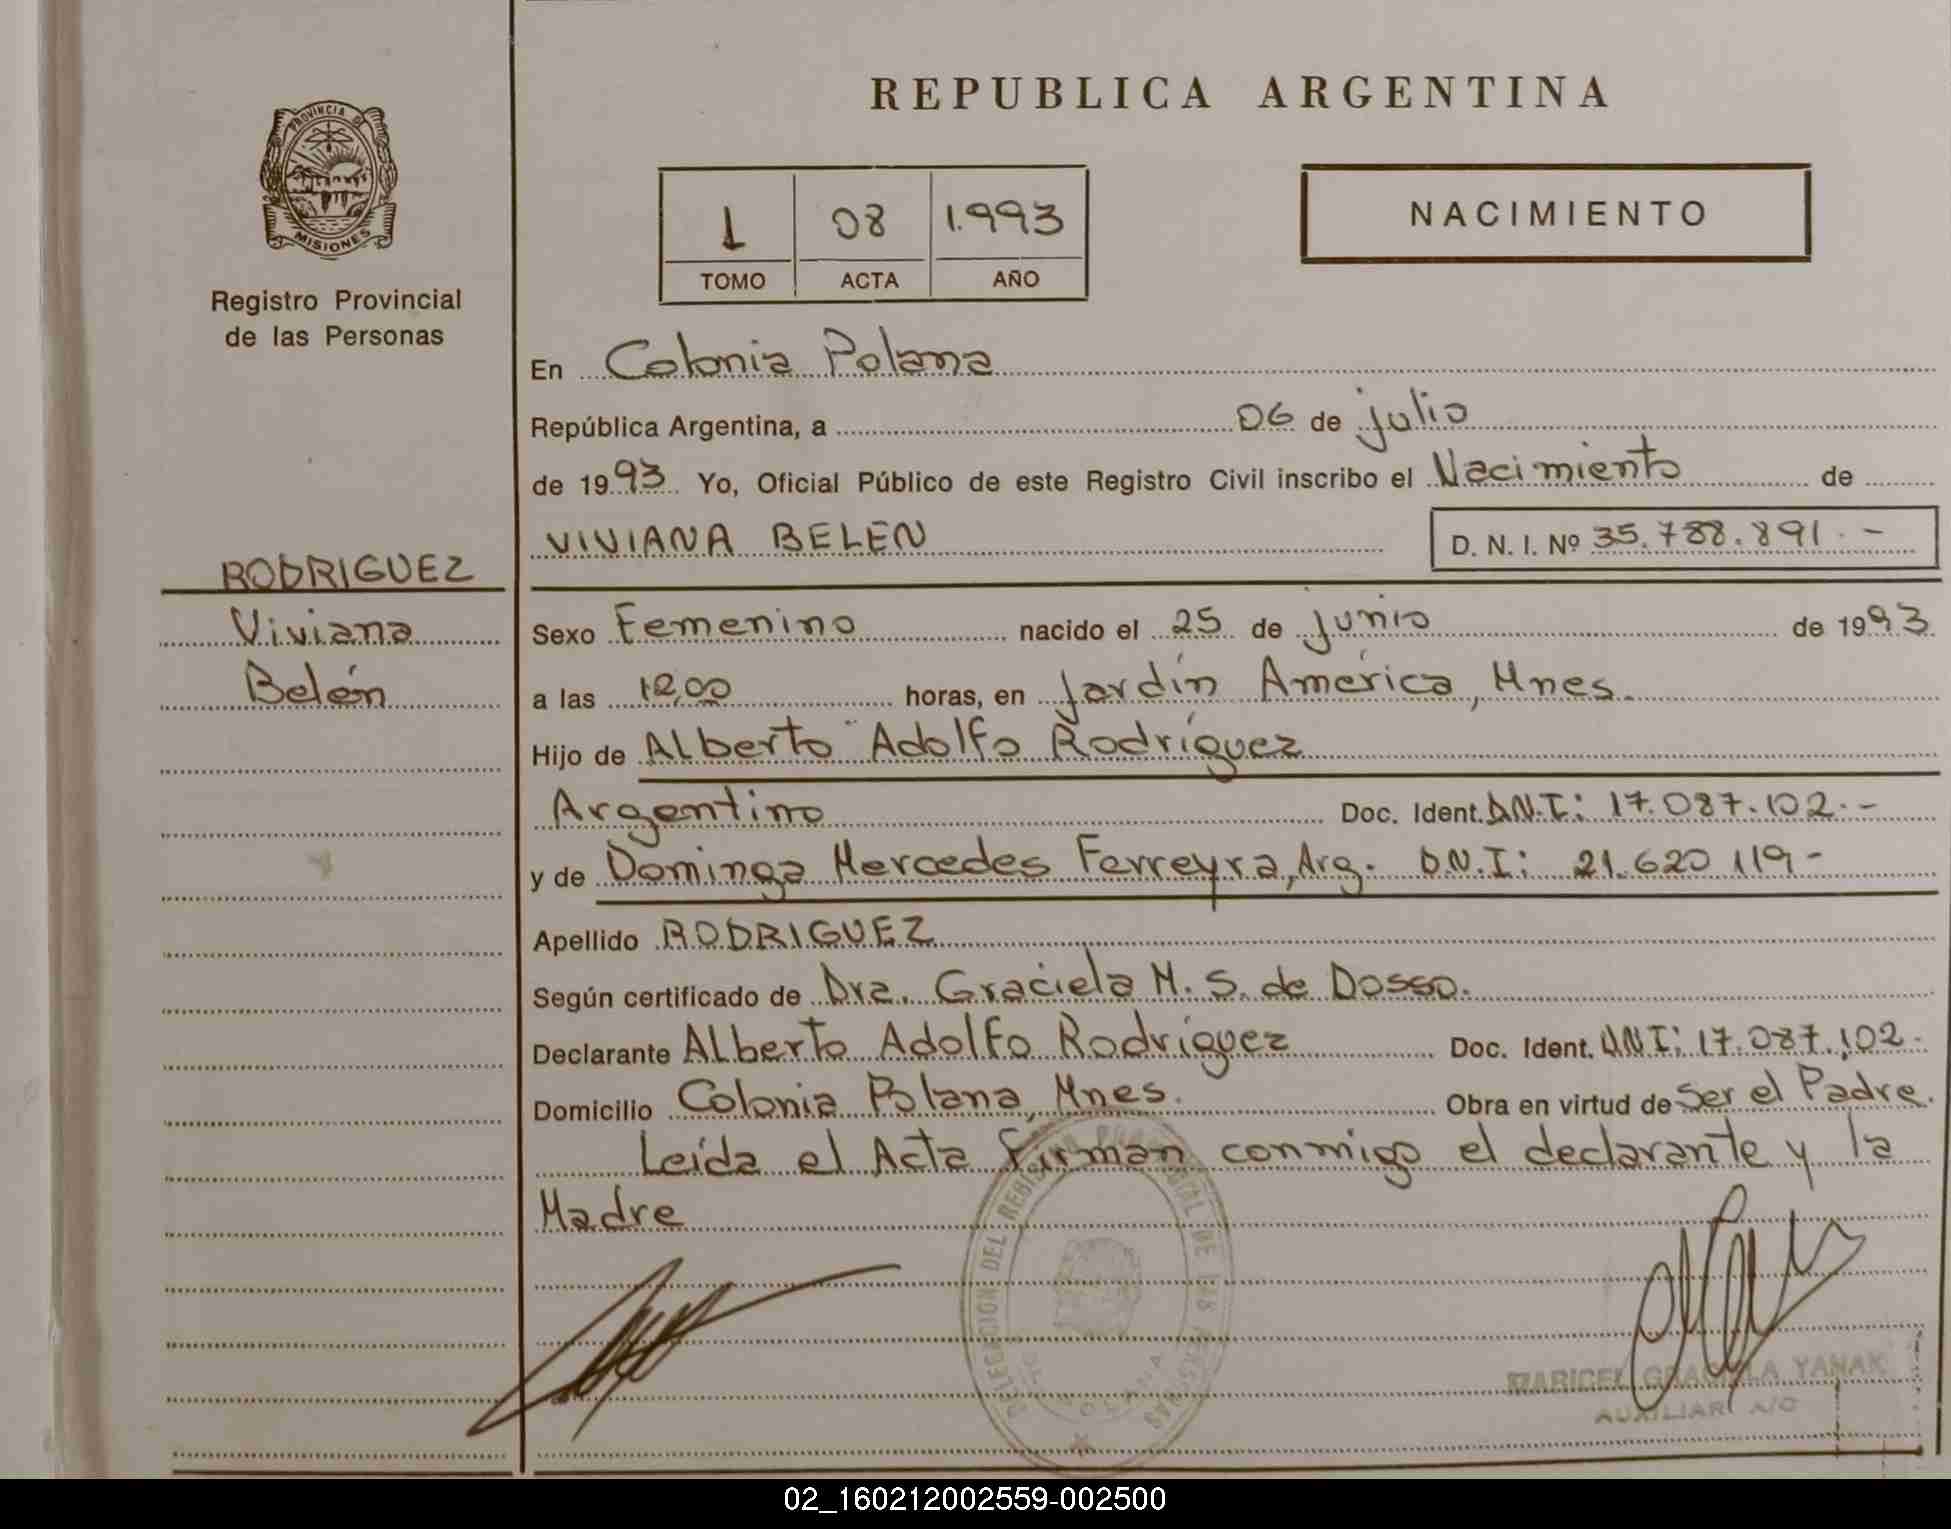 PROVINCIA DE
MISIONES
Registro Provincial
de las Personas
RODRIGUEZ
Viviana
Belén
REPUBLICA ARGENTINA
1 08 1.993
TOMO ACTA AÑO
NACIMIENTO
En Colonia Polana
República Argentina, a 06 de julio
de 1993 Yo, Oficial Público de este Registro Civil inscribo el Nacimiento de
VIVIANA BELEN D. N. I. Nº 35.788.891.-
Sexo Femenino nacido el 25 de junio de 1993
a las 12,00 horas, en Jardín América, Mnes.
Hijo de Alberto Adolfo Rodríguez
Argentino Doc. Ident. D.N.I: 17.087.102.-
y de Dominga Mercedes Ferreyra, Arg. D.N.I: 21.620.119-
Apellido RODRIGUEZ
Según certificado de Dra. Graciela M. S. de Dosso.
Declarante Alberto Adolfo Rodríguez Doc. Ident. D.N.I: 17.087.102.-
Domicilio Colonia Polana, Mnes. Obra en virtud de Ser el Padre.
Leída el Acta firman conmigo el declarante y la
Madre
DELEGACION DEL REGISTRO PROVINCIAL DE LAS PERSONAS
MARICEL GRACIELA YANAK
AUXILIAR A/C
02_160212002559-002500